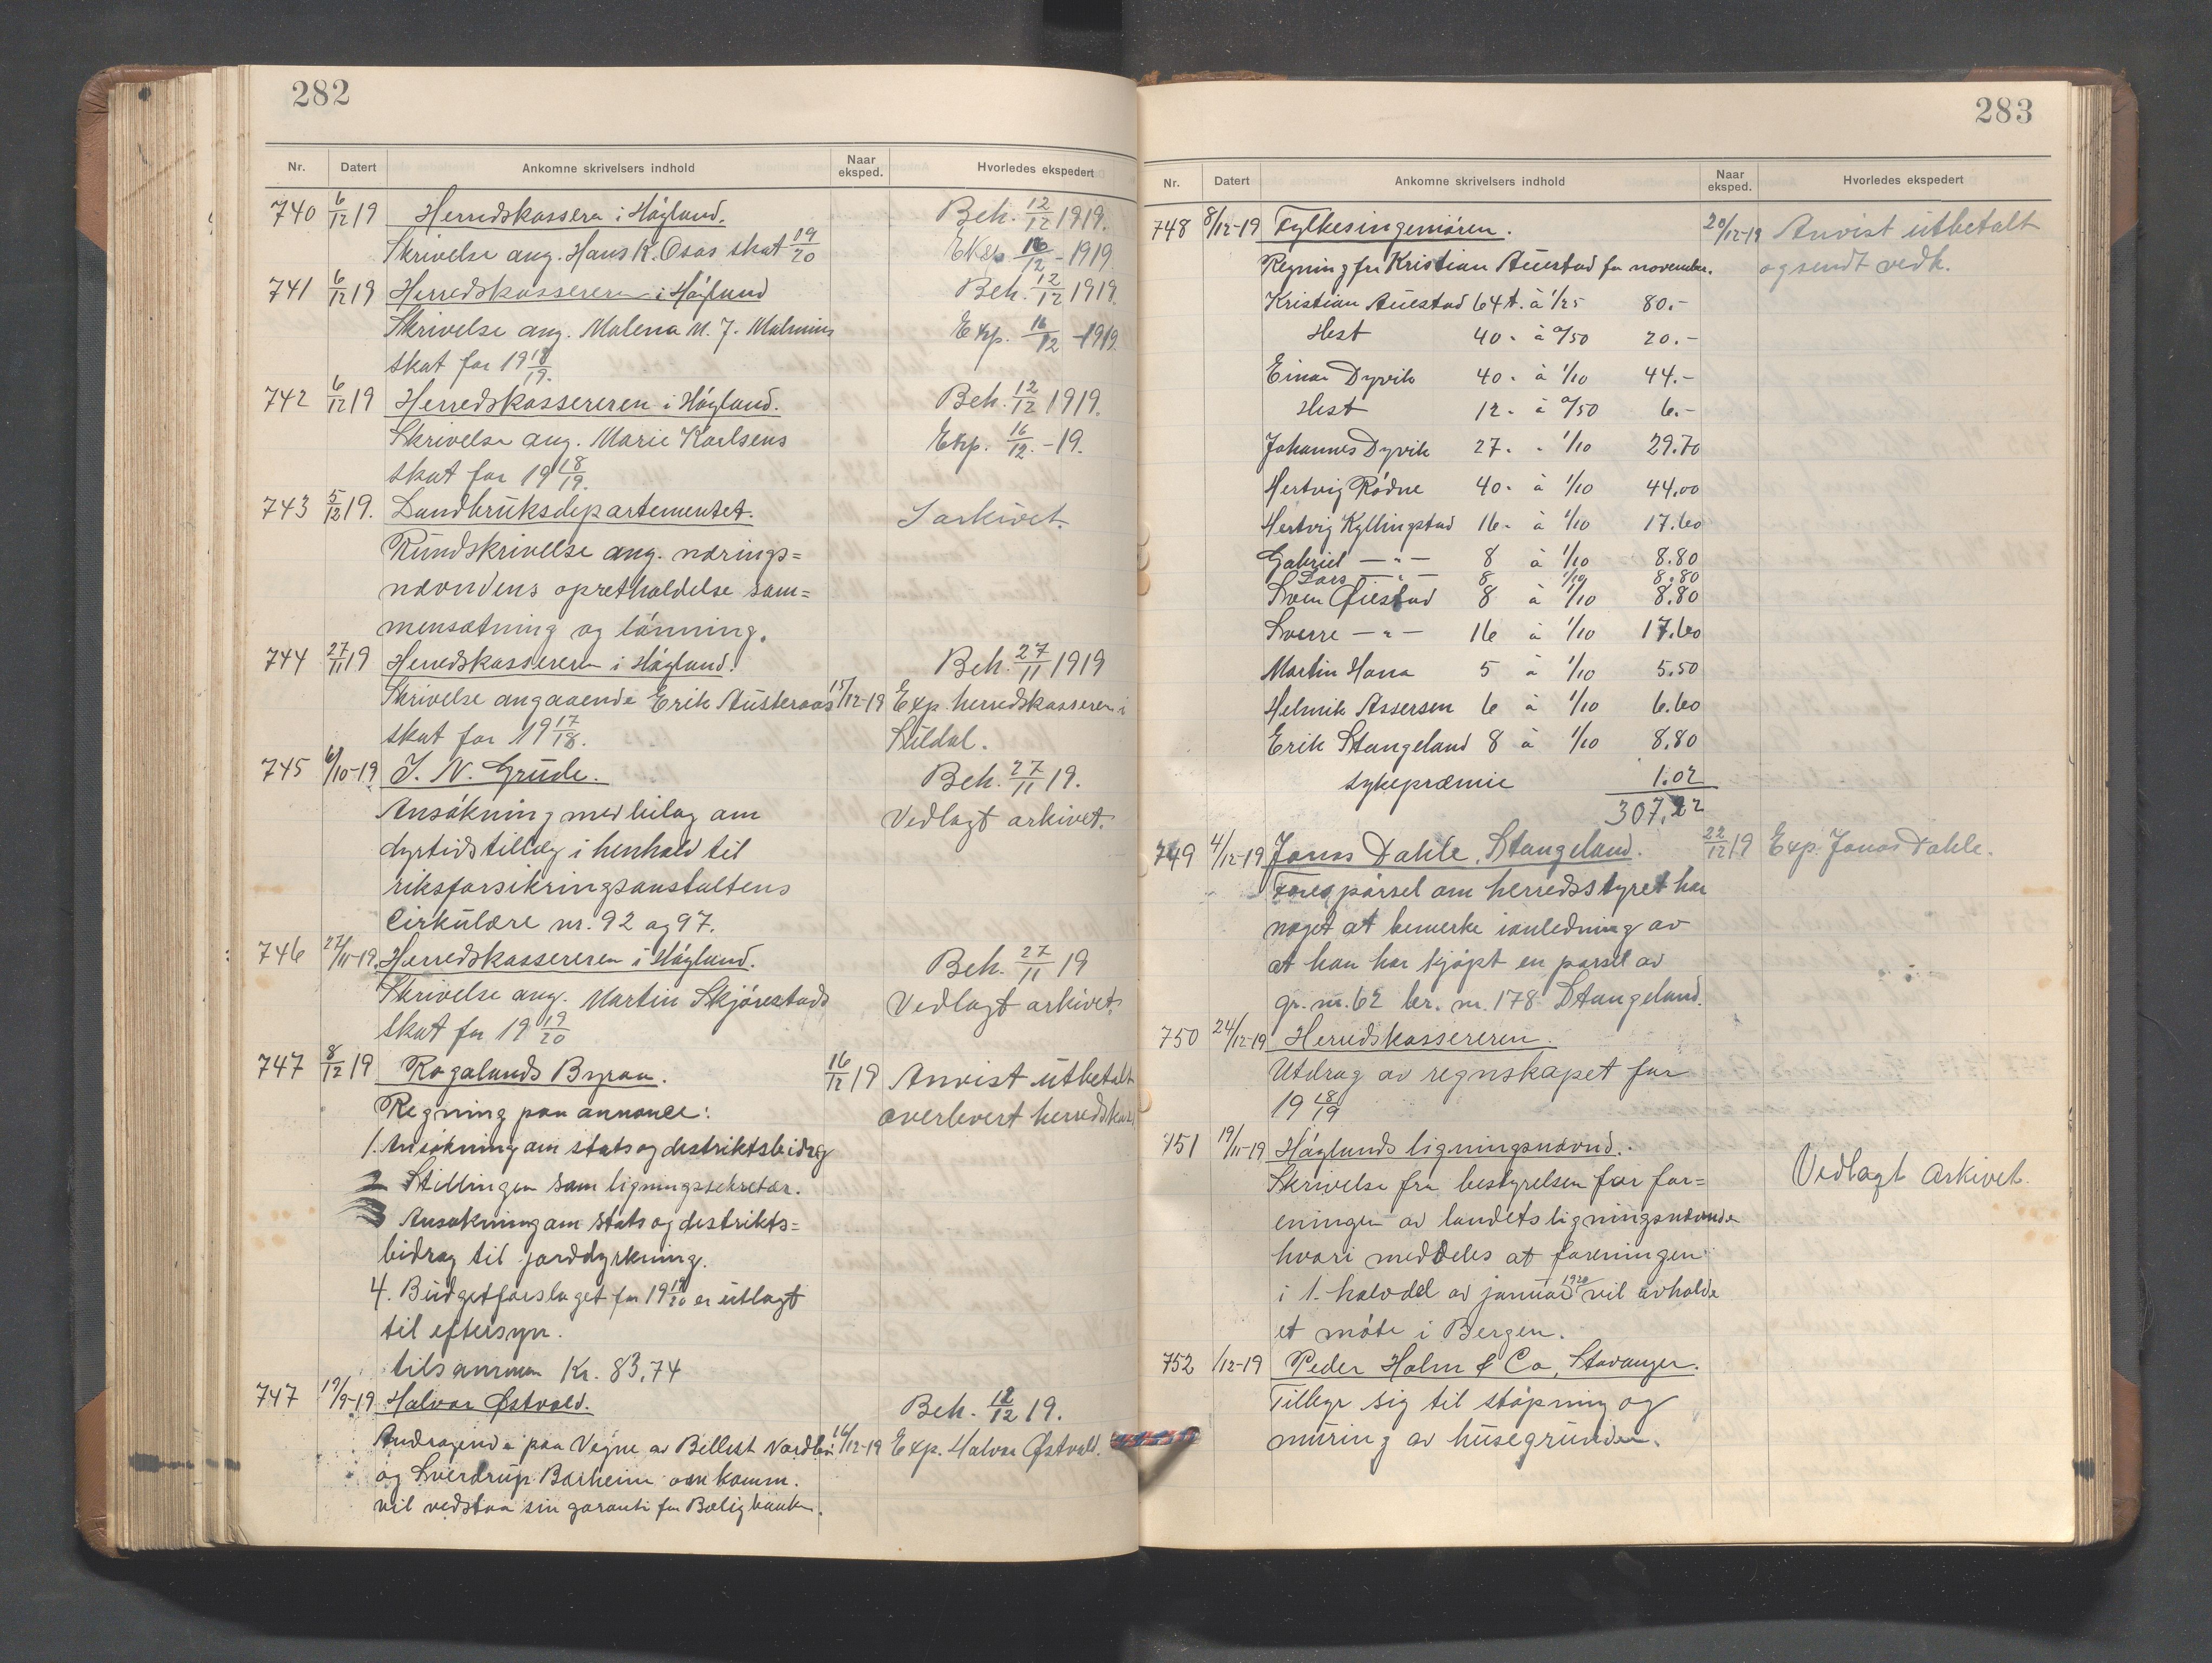 282
Nr. Datert Ankomne skrivelsers indhold Naar eksped. Hvorledes ekspedert
740 6/12 19 Herredskassera i Høyland. Beh. 12/12 1919.
Skrivelse ang. Hans K. Osas skat 19/20 Eksp. 16/12 - 1919
741 6/12 19 Herredskassereren i Høyland Beh. 12/12 1919.
Skrivelse ang. Malena M. J. Malmins Exp. 16/12 - 1919
skat for 19 18/19.
742 6/12 19 Herredskassereren i Høyland. Beh. 12/12 1919.
Skrivelse ang. Marie Karlsens Exp. 16/12. - 19.
skat for 19 18/19.
743 5/12 19. Landbruksdepartementet. I arkivet.
Rundskrivelse ang. nærings=
nævndens opretholdelse sam=
mensætning og lønning.
744 27/11 19 Herredskassereren i Høyland. Beh. 27/11 1919
Skrivelse angaaende Erik Austeraas 15/12-19 Exp. herredskassereren i
skat for 19 17/18. Suldal.
745 6/10-19 T. N. Grude. Beh. 27/11 19.
Ansøkning med bilag om Vedlagt arkivet.
dyrtidstillæg i henhold til
riksforsikringsanstaltens
Cirkulære nr. 92 og 97.
746 27/11-19. Herredskassereren i Høyland. Beh. 27/11 19
Skrivelse ang. Martin Skjørestads Vedlagt arkivet.
skat for 19 19/20
747 8/12 19 Rogalands Byraa. 16/12 19 Anvist utbetalt
Regning paa annonce: overlevert herredskas.
1. Ansøkning om stats og destriktsbidrag
2 Stillingen som ligningssekretær.
3 Ansøkning om stats og destrikts=
bidrag til jorddyrkning.
4. Budgetforslaget for 19 19/20 er utlagt
til eftersyn.
tilsammen Kr. 83,74
747 19/9-19 Halvar Østvold. Beh. 12/12 19.
Andragende paa Vegne av Bellest Nordbø 16/12-19 Exp. Halvar Østvold.
og Sverdrup Barheim om komm.
vil vedstaa sin garanti for Boligbanken.
283
Nr. Datert Ankomne skrivelsers indhold Naar eksped. Hvorledes ekspedert
748 8/12-19 Fylkesingeniøren. 20/12-19 Anvist utbetalt
Regning fra Kristian Auestad for november. og sendt vedk.
Kristian Auestad 64 t. à 1/25 80.-
Hest 40 " à 0/50 20.-
Einar Dyvik 40 " à 1/10 44.-
Hest 12 " à 0/50 6.-
Johannes Dyvik 27 " " 1/10 29.70
Hertvig Rødne 40 " à 1/10 44,00
Hertvig Kyllingstad 16 " à 1/10 17.60
Gabriel — " — 8 à 1/10 8.80
Lars — " — 8 1/10 8.80
Sven Øiestad 8 à 1/10 8.80
Sverre — " — 16 à 1/10 17.60
Martin Hana 5 à 1/10 5.50
Helmik Assersen 6 à 1/10 6.60
Erik Stangeland 8 à 1/10 8.80
sykepræmie 1.02
307,22
749 4/12-19 Jonas Dahle, Stangeland. 22/12 19 Exp. Jonas Dahle.
Forespørsel om herredsstyret har
noget at bemerke i anledning av
at han har kjøpt en parsel av
gr. nr. 62 br. nr. 178 Stangeland.
750 24/12-19 Herredskassereren.
Utdrag av regnskapet for
19 18/19
751 19/11-19 Høylands ligningsnævnd.
Skrivelse fra bestyrelsen for for= Vedlagt arkivet.
eningen av landets ligningsnævnder
hvori meddeles at foreningen
i 1. halvdel av januar 1920 vil avholde
et møte i Bergen.
752 1/12-19 Peder Holm & Co, Stavanger.
Tilbyr sig til støpning og
muring av husegrunder.